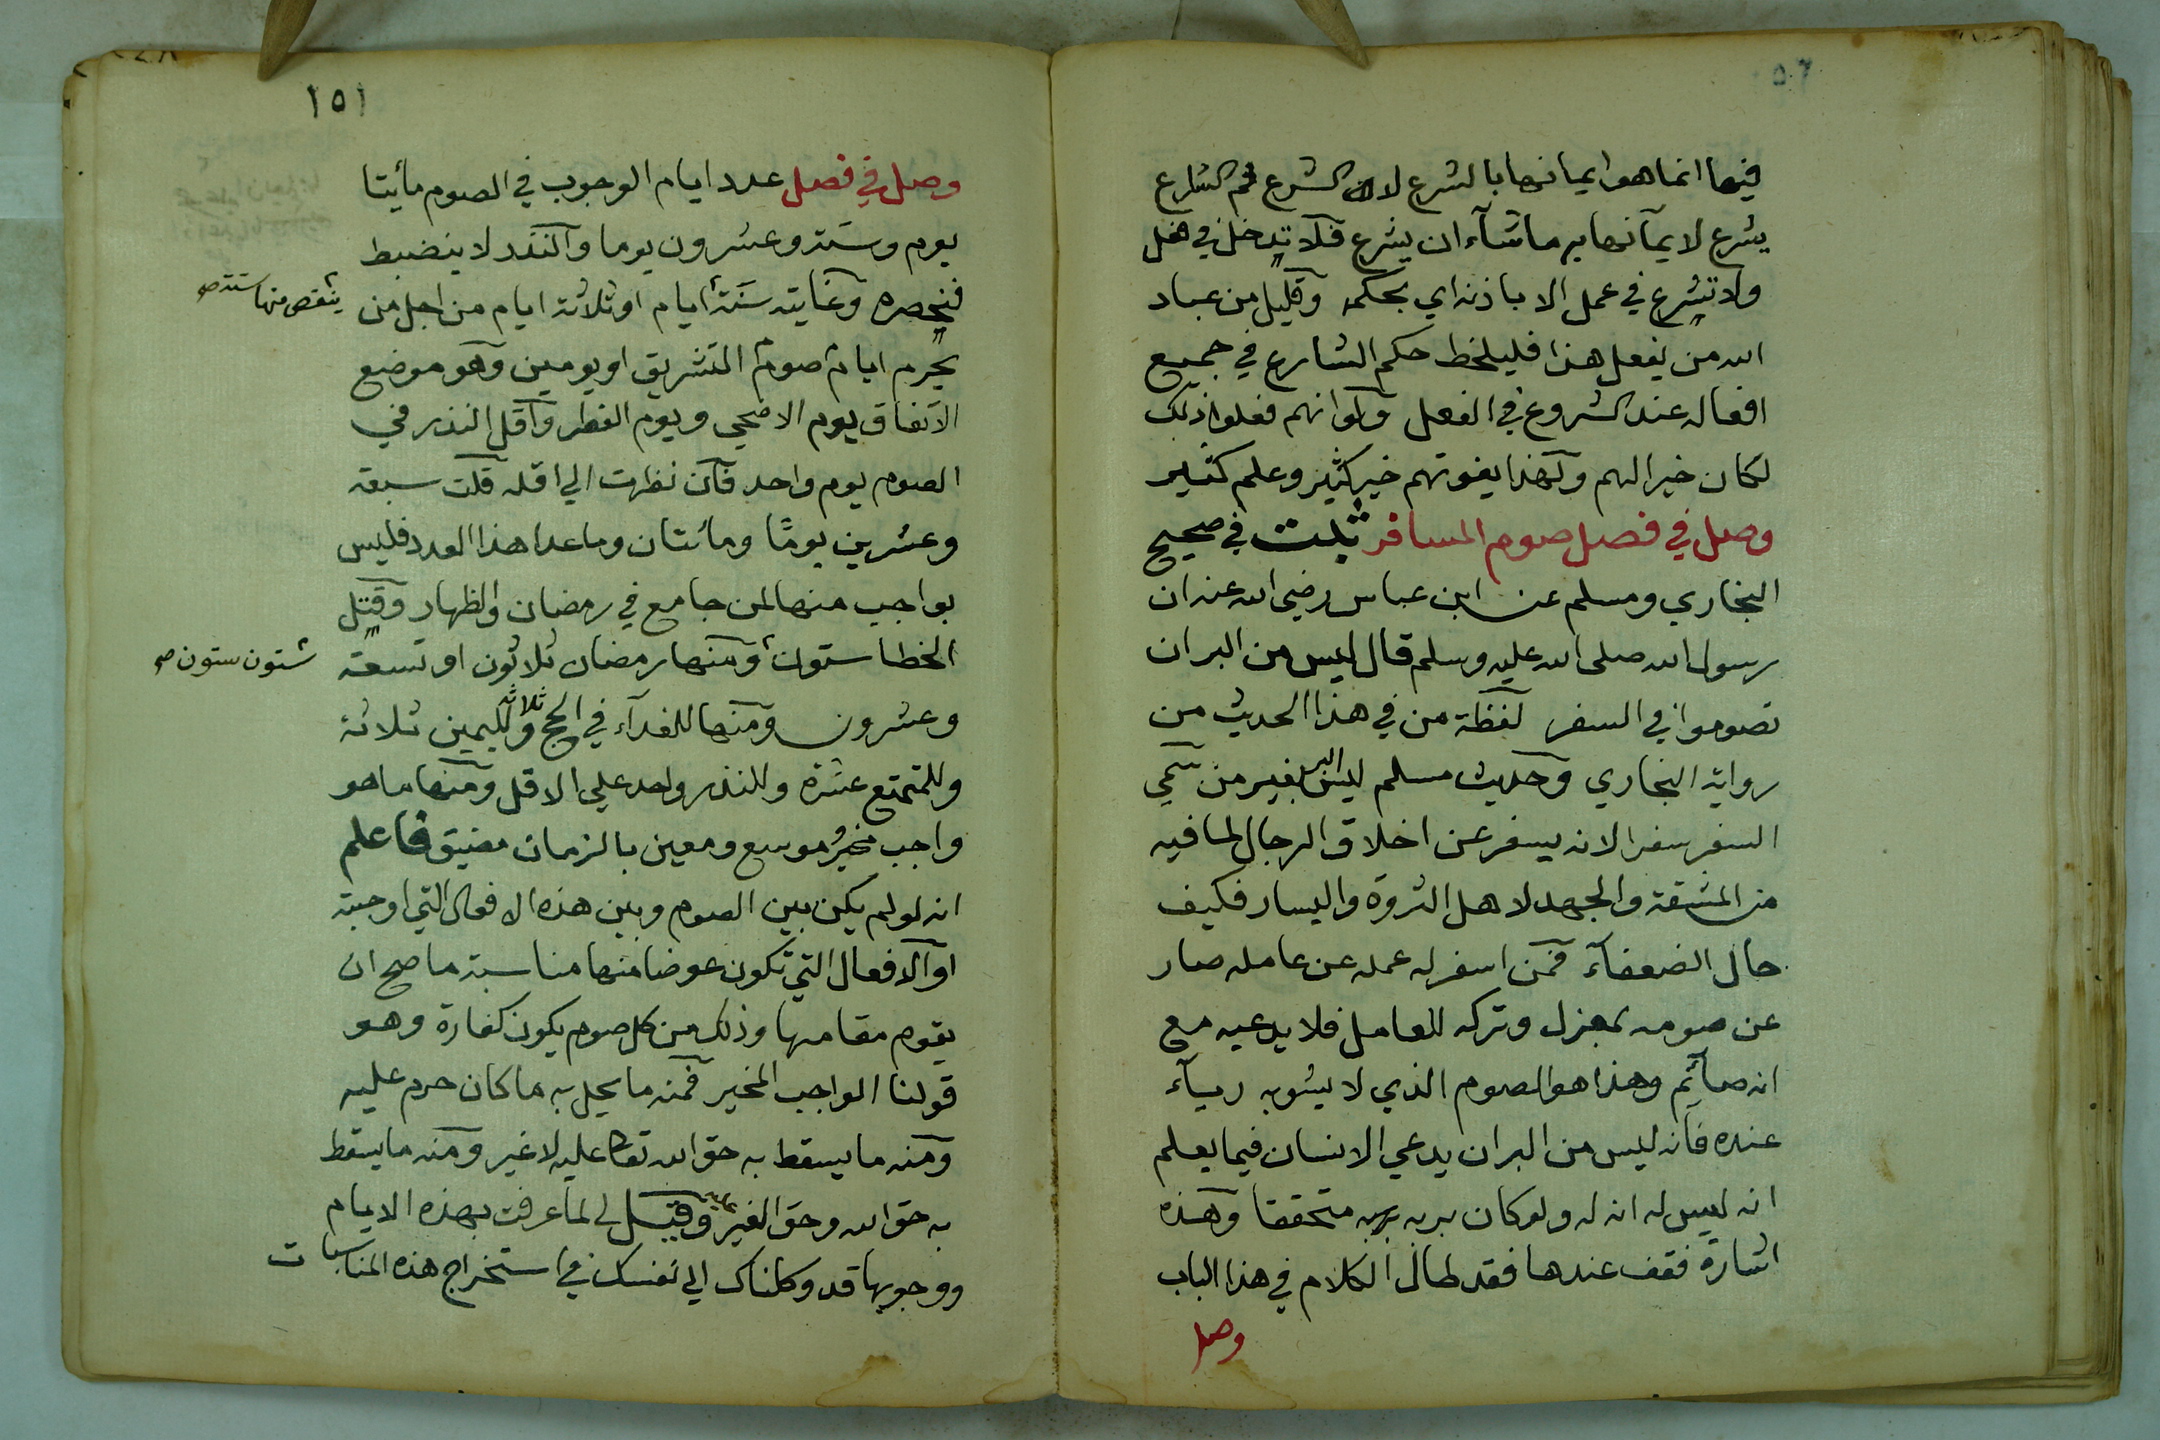 فيها انما هو ايمانها بالشرع لان الشرع ثم الشارع
يشرع لايمانها به ما شآء ان يشرع فلا تدخل في فعل
ولا تشرع في عمل الا باذنه اي بحكمه وقليل من عباد
الله من يفعل هذا فليلحظ حكم الشارع في جميع
افعاله عند الشروع في الفعل ولو انهم فعلوا ذلك
لكان خيرا لهم ولهذا يفوتهم خير كثير وعلم كثير
وصل في فصل صوم المسافر ثبت في صحيح
البخاري ومسلم عن ابن عباس رضي الله عنه ان
رسول الله صلى الله عليه وسلم قال ليس من البر ان
تصوموا في السفر لفظة من في هذا الحديث من
رواية البخاري وحديث مسلم ليس البر بغير من سمي
السفر سفرا لانه يسفر عن اخلاق الرجال لما فيه
من المشقة والجهد لاهل الثروة واليسار فكيف
حال الضعفآء فمن اسفر له عمله عن عامله صار
عن صومه بمعزل وتركه للعامل فلا يدعيه مع
انه صآئم وهذا هو الصوم الذي لا يشوبه ريآء
عنده فانه ليس من البر ان يدعي الانسان فيما يعلم
انه ليس له انه له ولو كان بربه بربه متحققا وهذه
اشارة فقف عندها فقد طال الكلام في هذا الباب
وصل
١٥١
وصل في فصل عدد ايام الوجوب في الصوم مأيتا
يوم وستة وعشرون يوما والنذر لا ينضبط
فنحصره وغايته ستة ايام او ثلاثة ايام من اجل من
ينقص منها ستة صح
يحرم ايام صوم التشريق او يومين وهو موضع
الاتفاق يوم الاضحي ويوم الفطر واقل النذر في
الصوم يوم واحد فان نظرت الي اقله قلت سبعة
وعشرين يومًا ومائتان وما عدا هذا العدد فليس
بواجب منها لمن جامع في رمضان والظهار وقتل
الخطا ستون ومنها رمضان ثلاثون او تسعة
ستون ستون صح
وعشرون ومنها للفدآء في الحج ثلاثة ولليمين ثلاثة
وللمتمتع عشرة وللنذر واحد علي الاقل ومنها ما هو
واجب مخير موسع ومعين بالزمان مضيق فاعلم
انه لو لم يكن بين الصوم وبين هذه الافعال التي اوجبته
او الافعال التي تكون عوضا منها مناسبة ما صح ان
يقوم مقامها وذلك من كل صوم يكون كفارة وهو
قولنا الواجب المخير فمنه ما يحل به ما كان حرم عليه
ومنه ما يسقط به حق الله تعالى عليه لا غير ومنه ما يسقط
به حق الله وحق الغير عليه وقيل لي لما عرفت بهذه الايام
ووجوبها قد وكلناك الي نفسك في استخراج هذه المناسبات